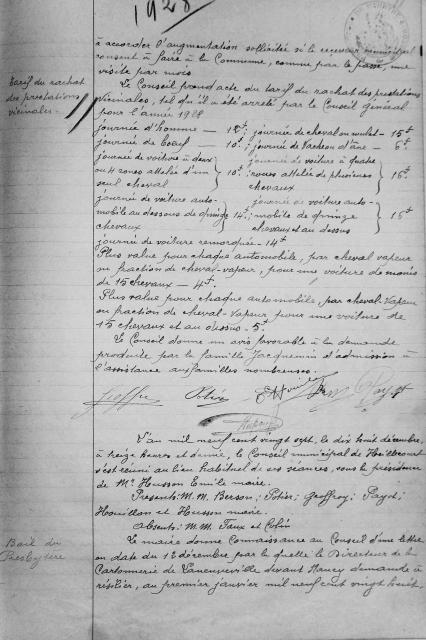 1928
à accorder l'augmentation sollicitée si le receveur municipal
consent à faire à la Commune, comme par le passé, une
visite par mois
Tarif du rachat
des prestations
vicinales.
Le Conseil prend acte du tarif du rachat des prestations
vicinales, tel qu'il a été arreté par le Conseil général
pour l'année 1928
journée d'homme — 12f; journée de cheval ou mulet - 15f
journée de boeuf — 10f; journée de Vache ou d'âne - 8f
journée de voiture à deux
ou 4 roues attelée d'un
seul cheval } 10f;
journée de voiture à quatre
roues attelée de plusieurs
chevaux } 15f
journée de voiture auto-
mobile au dessous de quinze
chevaux } 14f;
journée de voiture auto-
mobile de quinze
chevaux et au dessus } 15f
journée de voiture remorquée - 14f
Plus value pour chaque automobile, par cheval vapeur
ou fraction de cheval-vapeur, pour une voiture de moins
de 15 chevaux — 4f.
Plus value pour chaque automobile, par cheval-vapeur
ou fraction de cheval-vapeur pour une voiture de
15 chevaux et au dessus - 5f
Le Conseil donne un avis favorable à la demande
produite par la famille Jacquemin d'admission à
l'assistance aux familles nombreuses.
Geoffroy Potier EHouillon Payot
Husson
L'an mil neuf cent vingt sept, le dix huit décembre,
à treize heures et demie, le Conseil municipal de
s'est réuni au lieu habituel de ses séances, sous la présidence
de Mr Husson Emile maire.
Présents: M.M. Berson; Potier; Geoffroy; Payot;
Houillon et Husson maire.
Absents: M.M. Faux et Colin
Bail du
Presbytère
Le maire donne Connaissance au Conseil d'une lettre
en date du 12 décembre par la quelle le Directeur de la
Cartonnerie de Laneuveville devant Nancy demande à
résilier, au premier janvier mil neuf cent vingt huit,